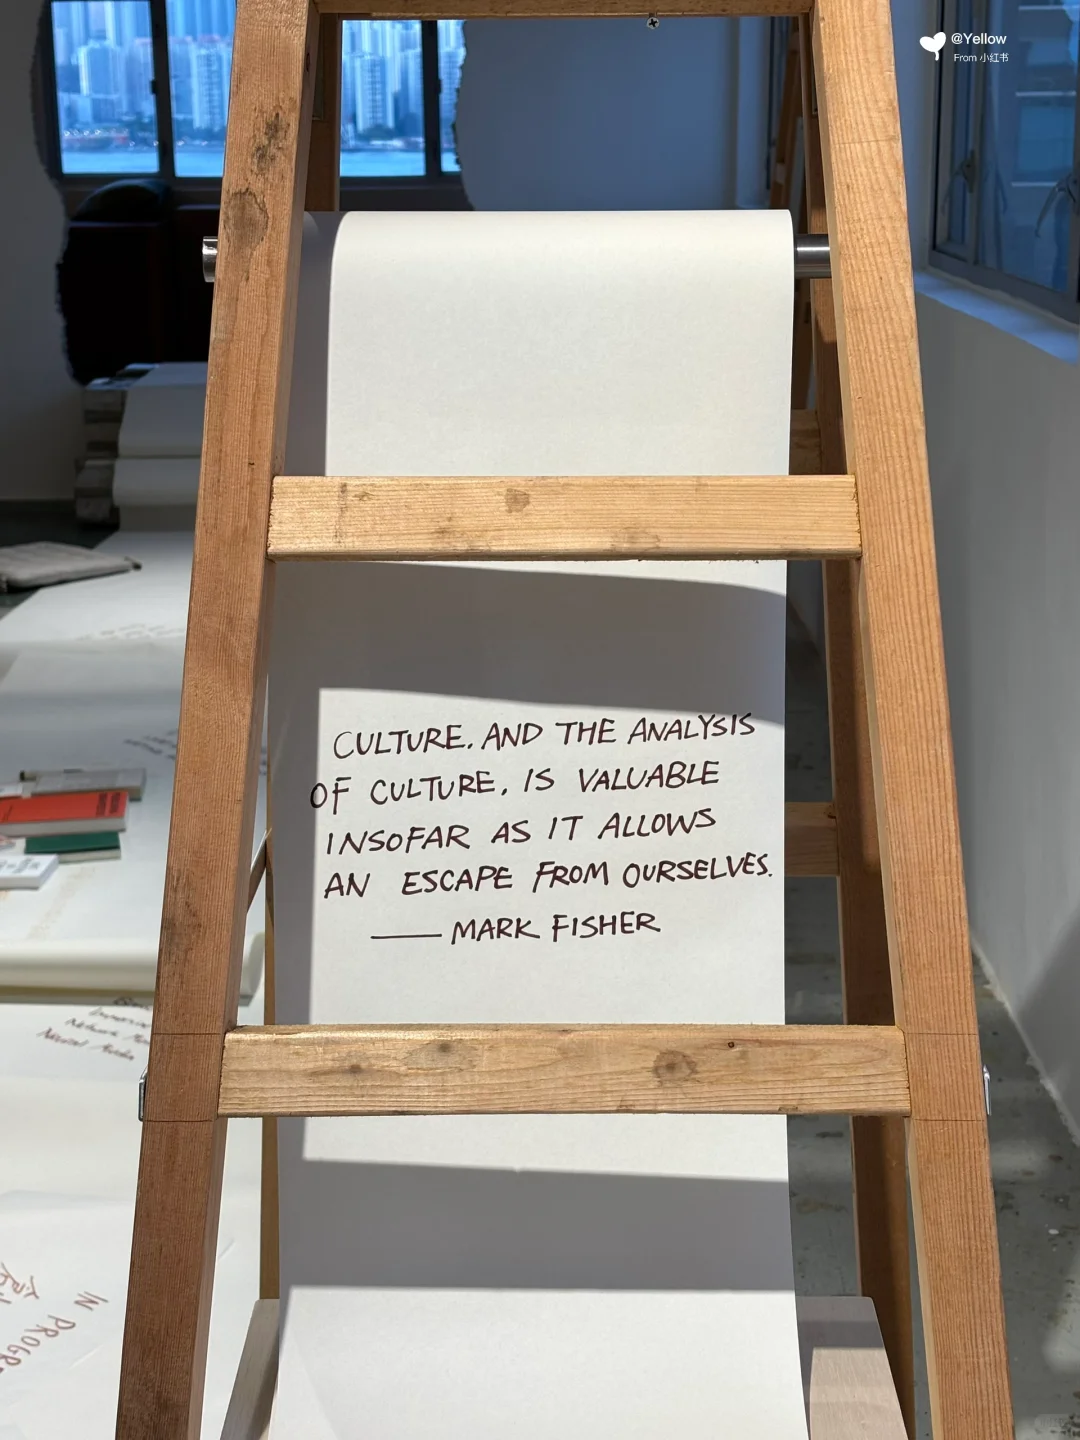 @Yellow
From 小红书
CULTURE. AND THE ANALYSIS
OF CULTURE, IS VALUABLE
INSOFAR AS IT ALLOWS
AN ESCAPE FROM OURSELVES.
—— MARK FISHER
IN PROGR